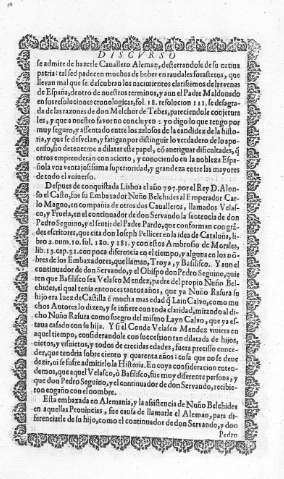 DISCVRSO
se admite de hazerle Cauallero Aleman, desterrandole de su natiua
patria: tal sed padecen muchos de beber en raudales forasteros, que
lleuan mal que se descubra los nacimientos clarissimos de las venas
de España, dentro de nuestros terminos, y aun el Padre Maldonado
en sus resoluciones cronologicas, fol. 18. resolucion 111. se desagra-
da de las razones de don Melchor de Teues, pareciendole conjectura-
les, y que a nuestro fauor no concluyen: yo digo lo que tengo por
muy seguro, y assentado entre los zelosos de la candidez de la histo-
ria, y que se desvelan, y fatigan por distinguir lo verdadero de lo apo-
crifo, sin detenerme a dilatar este papel, ò aueriguar dificultades, q̃
otros emprenderán con acierto, y conociendo en la nobleza Espa-
ñola ventajosissima superioridad, y grandeza entre las mayores
de todo el vniuerso.
Despues de conquistada Lisboa el año 797. por el Rey D. Alon-
so el Casto, fue su Embaxador Nuño Belchides al Emperador Car-
lo Magno, en compañia de otros dos Caualleros, llamados Velas-
co, y Fruela, en el continuador de don Seruando la sentencia de don
Pedro Seguino, y el sentir del Padre Pardo, que conforman con gran-
des escritores, que cita don Ioseph Pellicer en la idea de Cataluña,
libro 2. num. 10. fol. 180. y 181. y con estos Ambrosio de Morales,
lib. 13. cap. 32. con poca diferencia en el tiempo, y alguna en los nō-
bres de los Embaxadores, que llaman, Troya, y Basilisco. Y aun el
continuador de don Seruando, y el Obispo don Pedro Seguino, quie-
ren que Basilisco sea Velasco Mendez, padre del propio Nuño Bel-
chides, el qual tenia entonces tantos años, que ya Nuño Rasura su
hijo era Iuez de Castilla
mucha mas edad q̃ Lain Caluo, como mu-
chos Autores lo dizen, y se infiere con toda claridad, mirando al di-
cho Nuño Rasura como suegro del mismo Layn Caluo, que ya es-
taua casado con su hija. Y si el Conde Velasco Mendez viuiera en
aquel tiempo, considerandole con succession tan dilatada de hijos,
nietos, y visnietos, y todos de crecidas edades, fuera preciso conce-
der, que tendria sobre ciento y quarenta años: cosa que no se deue
dezir, ni se sufre admitirlo la Historia. En cuya consideracion enten-
demos, que aquel Velasco, ò Basilisco, fue muy diferente persona, y
que don Pedro Seguino, y el continuador de don Seruando, recibie-
ron engaño con el nombre.
Esta embaxada en Alemania, y la assistencia de Nuño Belchides
en aquellas Prouincias, fue causa de llamarle el Aleman, para di-
ferenciarle de su hijo, como el continuador de don Seruando, y don
Pedro